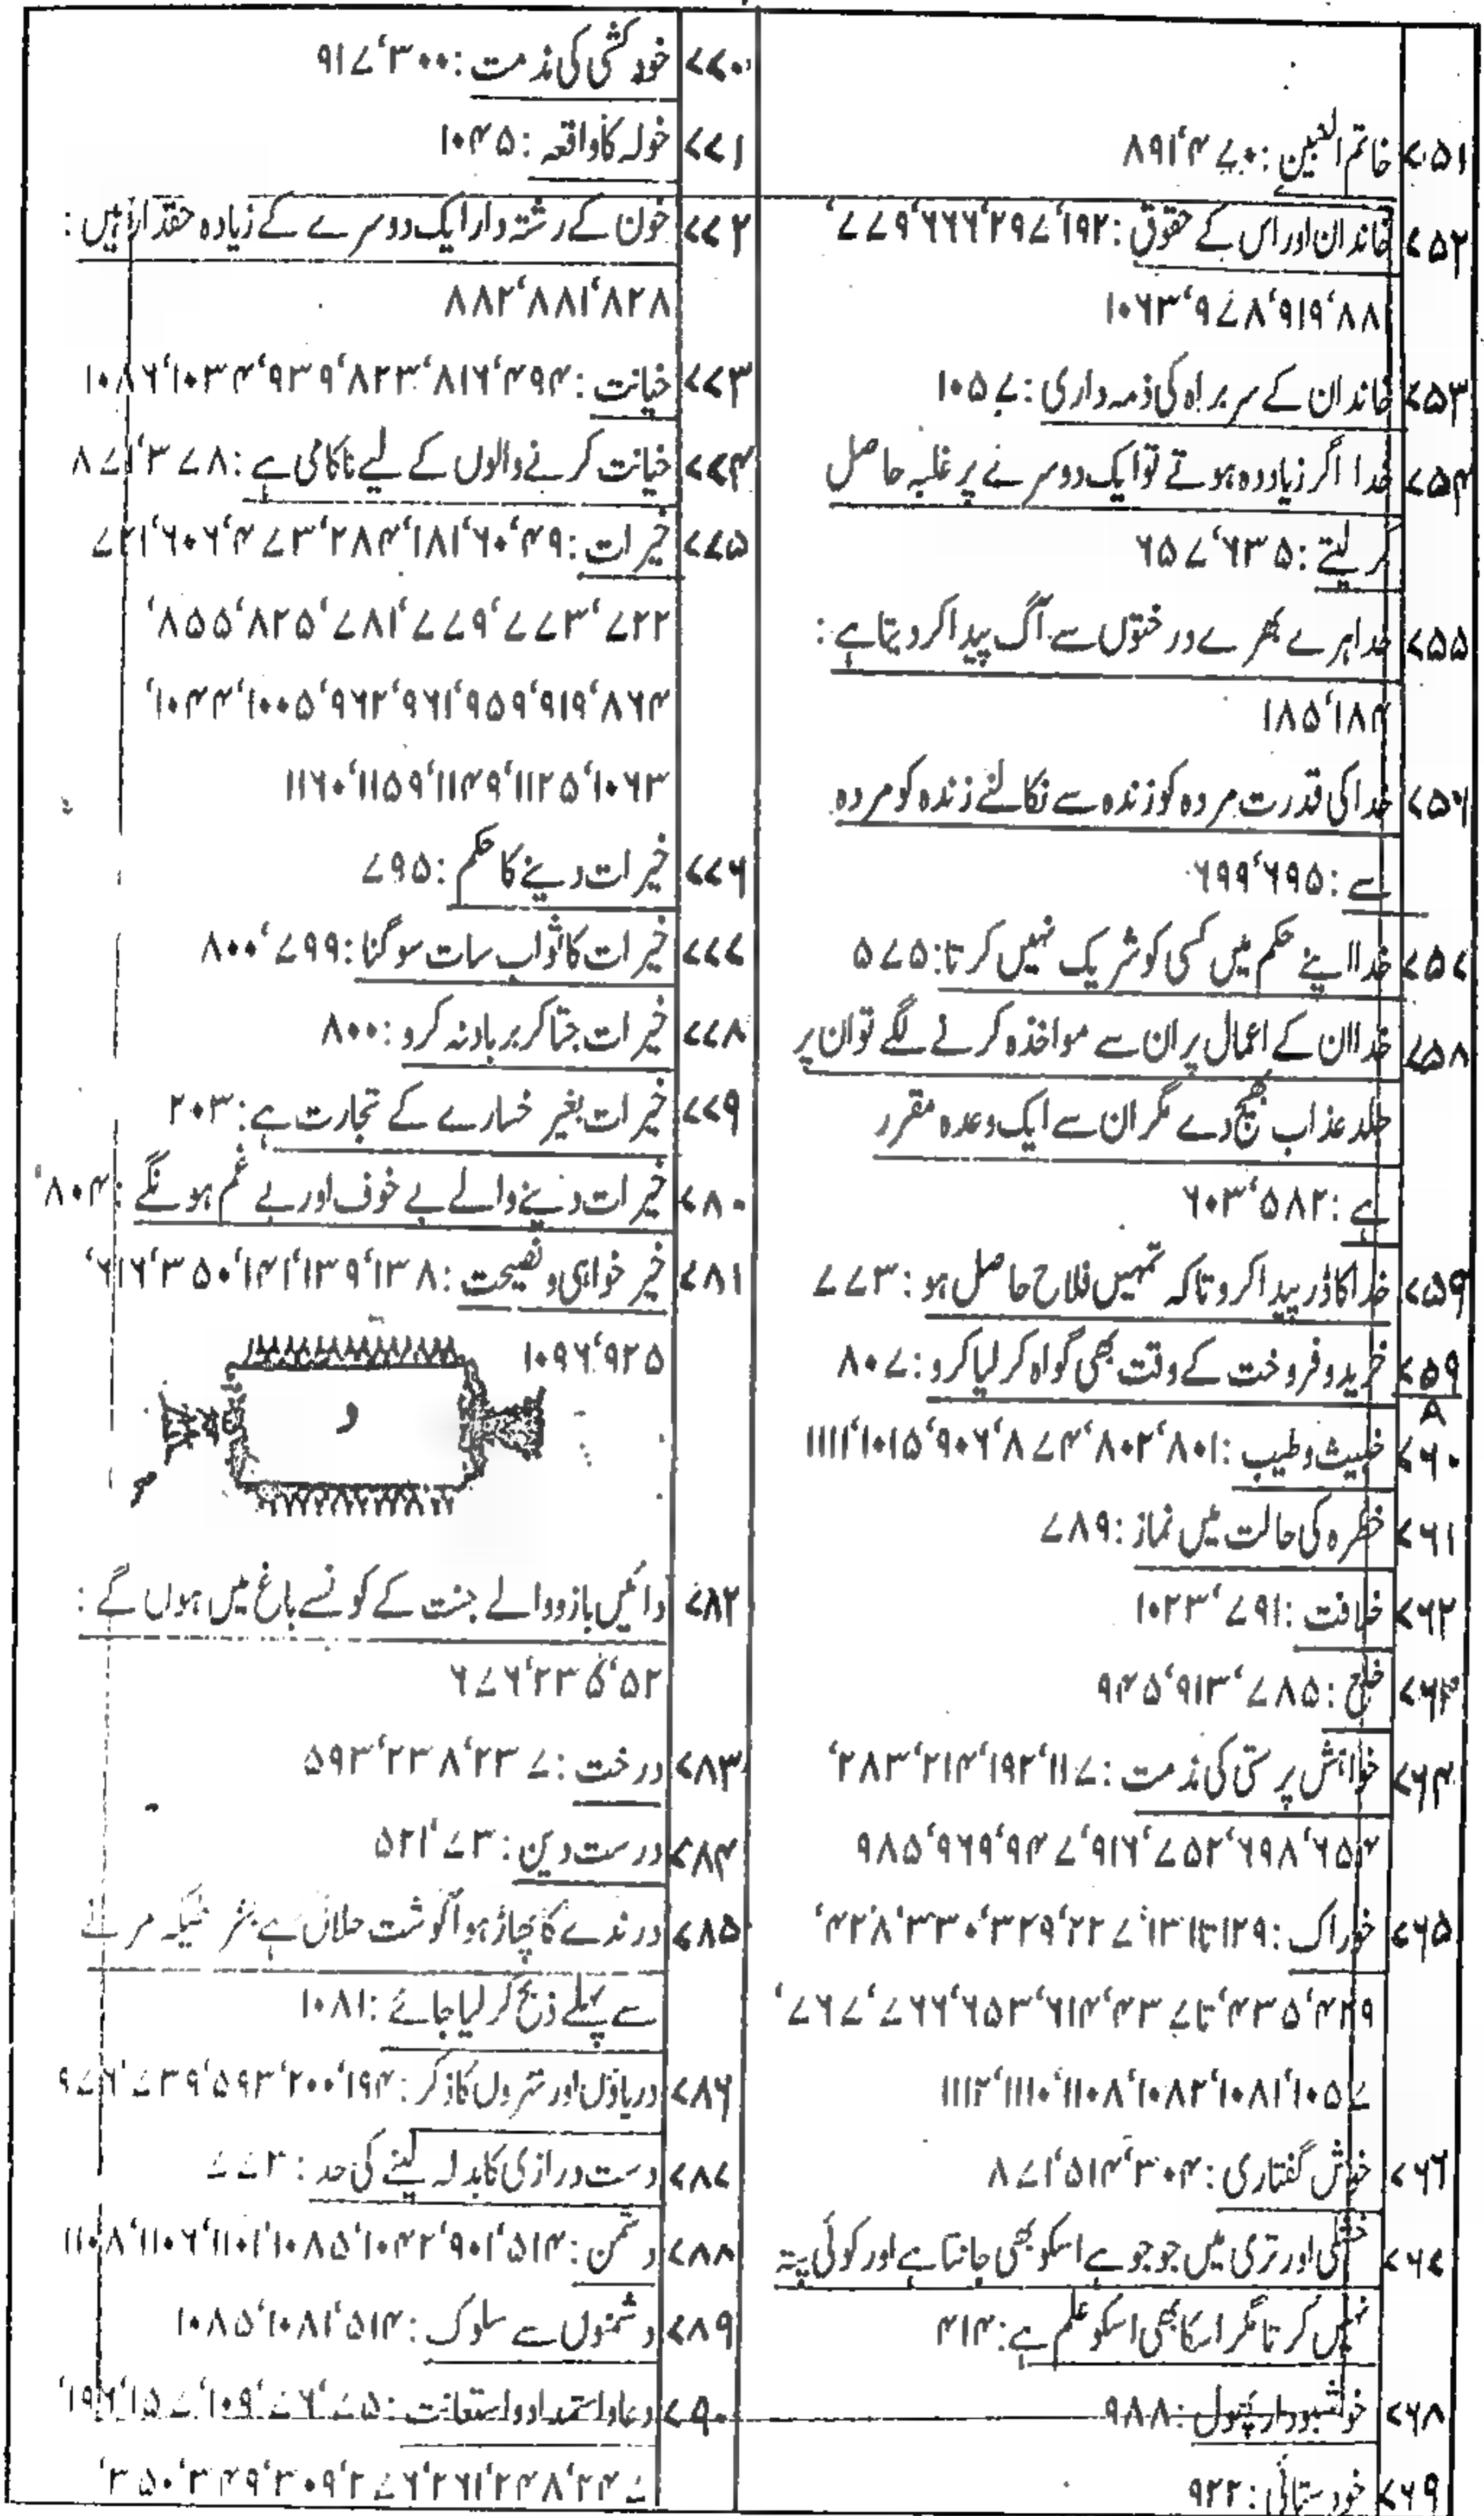 ۷۵۱ خاتم النبیین: ۴۷۰، ۸۹۱
۷۵۲ خاندان اور اس کے حقوق: ۱۹۲، ۲۹۷، ۶۶۶، ۷۷۹،
۸۸، ۹۱۹، ۹۷۸، ۱۰۶۳
۷۵۳ خاندان کے سربراہ کی ذمہ داری: ۱۰۵۷
۷۵۴ خدا اگر زیادہ ہوتے تو ایک دوسرے پر غلبہ حاصل
کر لیتے: ۶۳۵، ۶۵۷
۷۵۵ خدا ہرے بھرے درختوں سے آگ پیدا کر دیتا ہے:
۱۸۴، ۱۸۵
۷۵۶ خدا کی قدرت مردہ کو زندہ سے نکالنے زندہ کو مردہ
سے: ۶۹۵، ۶۹۹
۷۵۷ خدا اپنے حکم میں کسی کو شریک نہیں کرتا: ۵۷۵
۷۵۸ خدا ان کے اعمال پر ان سے مواخذہ کرنے لگے تو ان پر
جلد عذاب بھیج دے مگر ان سے ایک وعدہ مقرر
ہے: ۵۸۲، ۶۰۳
۷۵۹ خدا کا ڈر پیدا کرو تاکہ تمہیں فلاح حاصل ہو: ۷۷۳
۷۵۹ A خرید و فروخت کے وقت بھی گواہ کر لیا کرو: ۸۰۷
۷۶۰ خبیث و طیب: ۸۰۱، ۸۰۲، ۸۷۴، ۹۰۶، ۱۰۱۵، ۱۱۱۱
۷۶۱ خطرہ کی حالت میں نماز: ۷۸۹
۷۶۲ خلافت: ۷۹۱، ۱۰۲۳
۷۶۳ خلع: ۷۸۵، ۹۱۳، ۹۴۵
۷۶۴ خواہش پرستی کی مذمت: ۱۱۷، ۱۹۲، ۲۱۴، ۲۸۳،
۶۵۲، ۶۹۸، ۷۵۲، ۹۱۶، ۹۴۷، ۹۶۹، ۹۸۵
۷۶۵ خوراک: ۱۲۹ تا ۱۳۱، ۲۲۷، ۳۲۹، ۳۳۰، ۴۲۸،
۴۲۹، ۴۳۵ تا ۴۳۷، ۶۱۴، ۶۵۳، ۷۶۶، ۷۶۷،
۱۰۵۷، ۱۰۸۱، ۱۰۸۲، ۱۱۰۸، ۱۱۱۰، ۱۱۱۲
۷۶۶ خوش گفتاری: ۳۰۴، ۵۱۴، ۸۷۱
۷۶۷ خشکی اور تری میں جو جو ہے اسکو بھی جانتا ہے اور کوئی پتہ
نہیں گرتا مگر اسکا بھی اسکو علم ہے: ۴۱۴
۷۶۸ خوشبودار پھول: ۹۸۸
۷۶۹ خود ستائی: ۹۲۲
۷۷۰ خود کشی کی مذمت: ۳۰۰، ۹۱۷
۷۷۱ خولہ کا واقعہ: ۱۰۴۵
۷۷۲ خون کے رشتہ دار ایک دوسرے کے زیادہ حقدار ہیں:
۸۲۸، ۸۸۱، ۸۸۲
۷۷۳ خیانت: ۴۹۴، ۸۱۶، ۸۲۳، ۹۳۹، ۱۰۳۴، ۱۰۸۶
۷۷۴ خیانت کرنے والوں کے لیے ناکامی ہے: ۳۷۸، ۸۷۱
۷۷۵ خیرات: ۴۹، ۶۰، ۱۸۱، ۲۸۴، ۴۷۳، ۶۰۶، ۷۲۱
۷۲۲، ۷۷۳، ۷۷۹، ۷۸۱، ۸۲۵، ۸۵۵،
۸۶۴، ۹۱۹، ۹۵۹، ۹۶۱، ۹۶۲، ۱۰۰۵، ۱۰۴۴،
۱۰۶۳، ۱۱۲۵، ۱۱۴۹، ۱۱۵۹، ۱۱۶۰
۷۷۶ خیرات دینے کا حکم: ۷۹۵
۷۷۷ خیرات کا ثواب سات سو گنا: ۷۹۹، ۸۰۰
۷۷۸ خیرات جتا کر برباد نہ کرو: ۸۰۰
۷۷۹ خیرات بغیر خسارے کے تجارت ہے: ۲۰۳
۷۸۰ خیرات دینے والے بے خوف اور بے غم ہونگے: ۸۰۴،
۷۸۱ خیر خواہی و نصیحت: ۱۳۸، ۱۳۹، ۱۴۱، ۳۵۰، ۶۱۶،
۹۲۵، ۱۰۹۶
د
۷۸۲ دائیں بازو والے جنت کے کونسے باغ میں ہوں گے:
۵۲، ۲۳۵، ۶۷۶
۷۸۳ درخت: ۲۳۷، ۲۳۸، ۵۹۳
۷۸۴ درست دین: ۷۳، ۵۲۱
۷۸۵ درندے کا پھاڑا ہوا گوشت حلال ہے بشرطیکہ مرنے
سے پہلے ذبح کر لیا جائے: ۱۰۸۱
۷۸۶ دریاؤں اور نہروں کا ذکر: ۱۹۴، ۲۰۰، ۵۹۳، ۷۳۹، ۹۷۶
۷۸۷ دست درازی کا بدلہ لینے کی حد: ۷۷۲
۷۸۸ دشمن: ۵۱۴، ۹۰۱، ۱۰۴۲، ۱۰۸۵، ۱۱۰۱، ۱۱۰۶، ۱۱۰۸
۷۸۹ دشمنوں سے سلوک: ۵۱۴، ۱۰۸۱، ۱۰۸۵
۷۹۰ دعا و استمداد و استعانت: ۷۵، ۷۶، ۱۰۹، ۱۵۷، ۱۹۶،
۲۴۷، ۲۴۸، ۲۶۱، ۲۷۶، ۳۰۹، ۳۴۹، ۳۵۰،